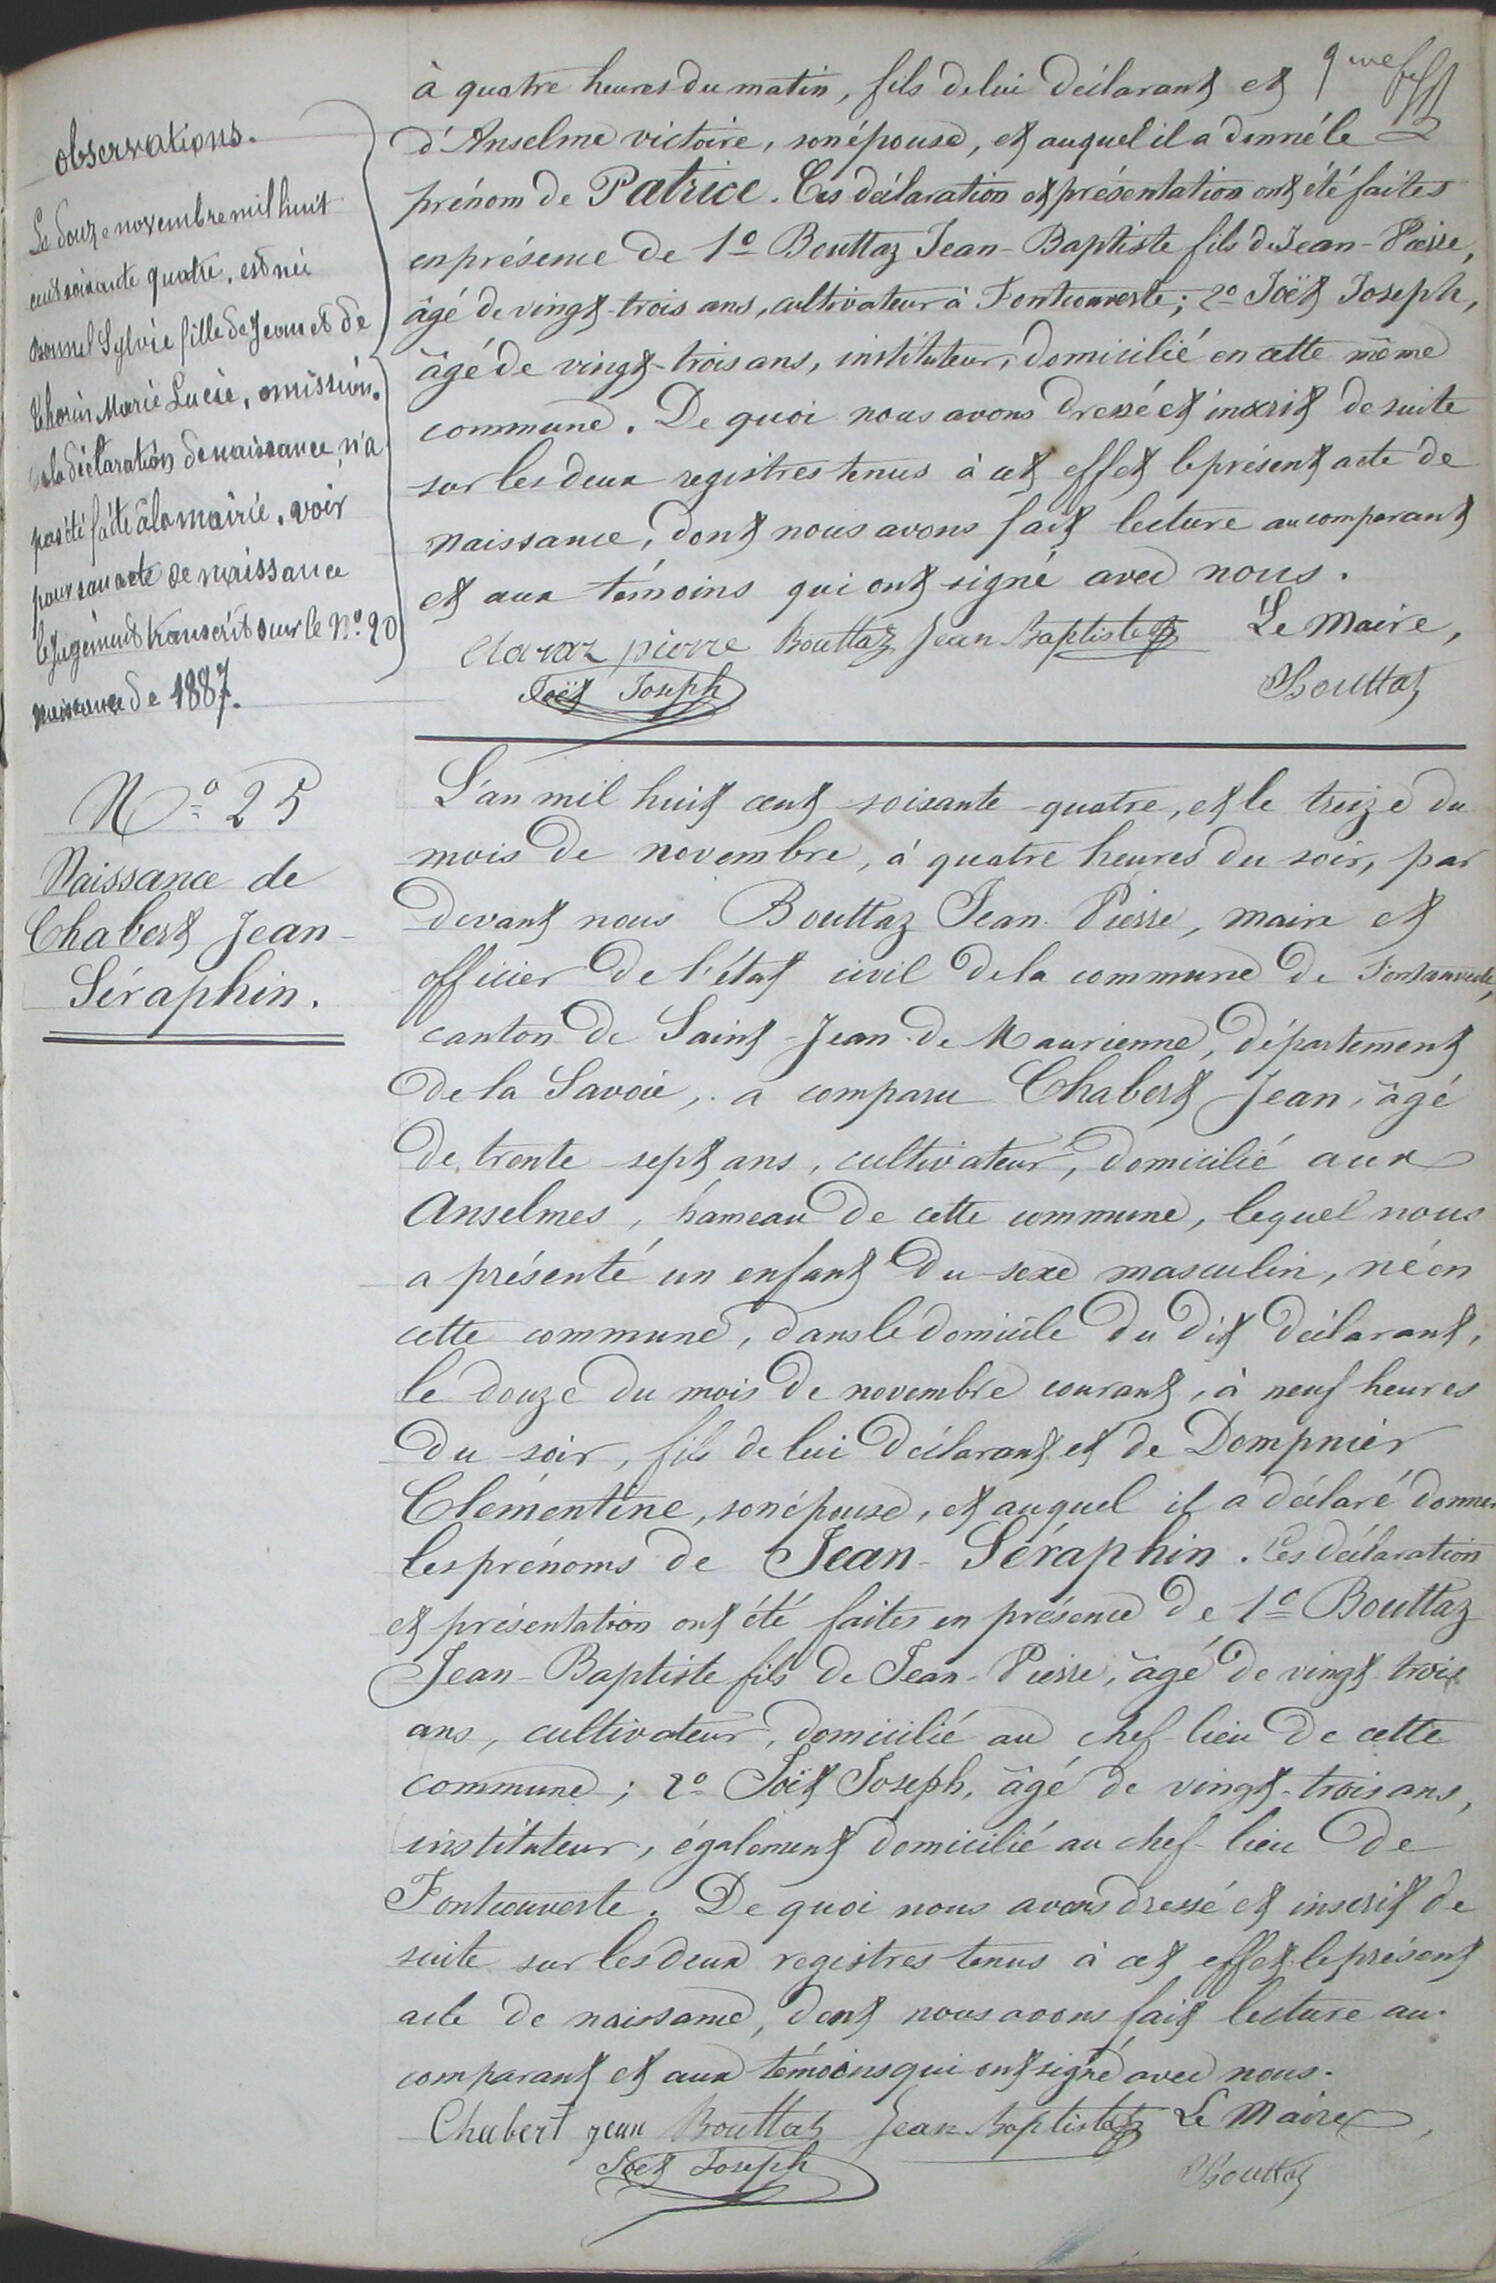 à quatre heures du matin, fils de lui déclarant et
d'Anselme victoire, son épouse, et auquel il a donné le
prénom de Patrice. Ces déclaration et présentation ont été faites
en présence de 1º Bouttaz Jean-Baptiste fils de Jean-Pierre,
âgé de vingt-trois ans, cultivateur à Fontcouverte; 2º Joët Joseph,
âgé de vingt-trois ans, instituteur, domicilié en cette même
commune. De quoi nous avons dressé et inscrit de suite
sur les deux registres tenus à cet effet le présent acte de
naissance, dont nous avons fait lecture au comparant
et aux témoins qui ont signé avec nous.
pierre Bouttaz Jean Baptiste Le Maire,
Joët Joseph Bouttaz
observations.
Le douze novembre mil huit
cent soixante quatre, est née
Bonnel Sylvie fille de Jean et de
Thorin Marie Lucie, omission.
la déclaration de naissance n'a
pas été faite à la mairie. voir
pour son acte de naissance
le jugement transcrit sur le Nº 20
naissance de 1887.
Nº 25
Naissance de
Chabert Jean-
Séraphin.
L'an mil huit cent soixante-quatre, et le treize du
mois de novembre, à quatre heures du soir, par
devant nous Bouttaz Jean-Pierre, maire et
officier de l'état civil de la commune de Fontcouverte,
canton de Saint-Jean-de Maurienne, département
de la Savoie, a comparu Chabert Jean, âgé
de trente-sept ans, cultivateur, domicilié aux
Anselmes, hameau de cette commune, lequel nous
a présenté un enfant du sexe masculin, né en
cette commune, dans le domicile du dit déclarant,
le douze du mois de novembre courant, à neuf heures
du soir, fils de lui déclarant et de Dompnier
Clémentine, son épouse, et auquel il a déclaré donner
les prénoms de Jean-Séraphin. Ces déclaration
et présentation ont été faites en présence de 1º Bouttaz
Jean-Baptiste fils de Jean-Pierre, âgé de vingt-trois
ans, cultivateur, domicilié au chef-lieu de cette
commune; 2º Joët Joseph, âgé de vingt-trois ans,
instituteur, également domicilié au chef-lieu de
Fontcouverte. De quoi nous avons dressé et inscrit de
suite sur les deux registres tenus à cet effet le présent
acte de naissance, dont nous avons fait lecture au
comparant et aux témoins qui ont signé avec nous.
Chabert jean Bouttaz Jean Baptiste Le Maire,
Joët Joseph Bouttaz